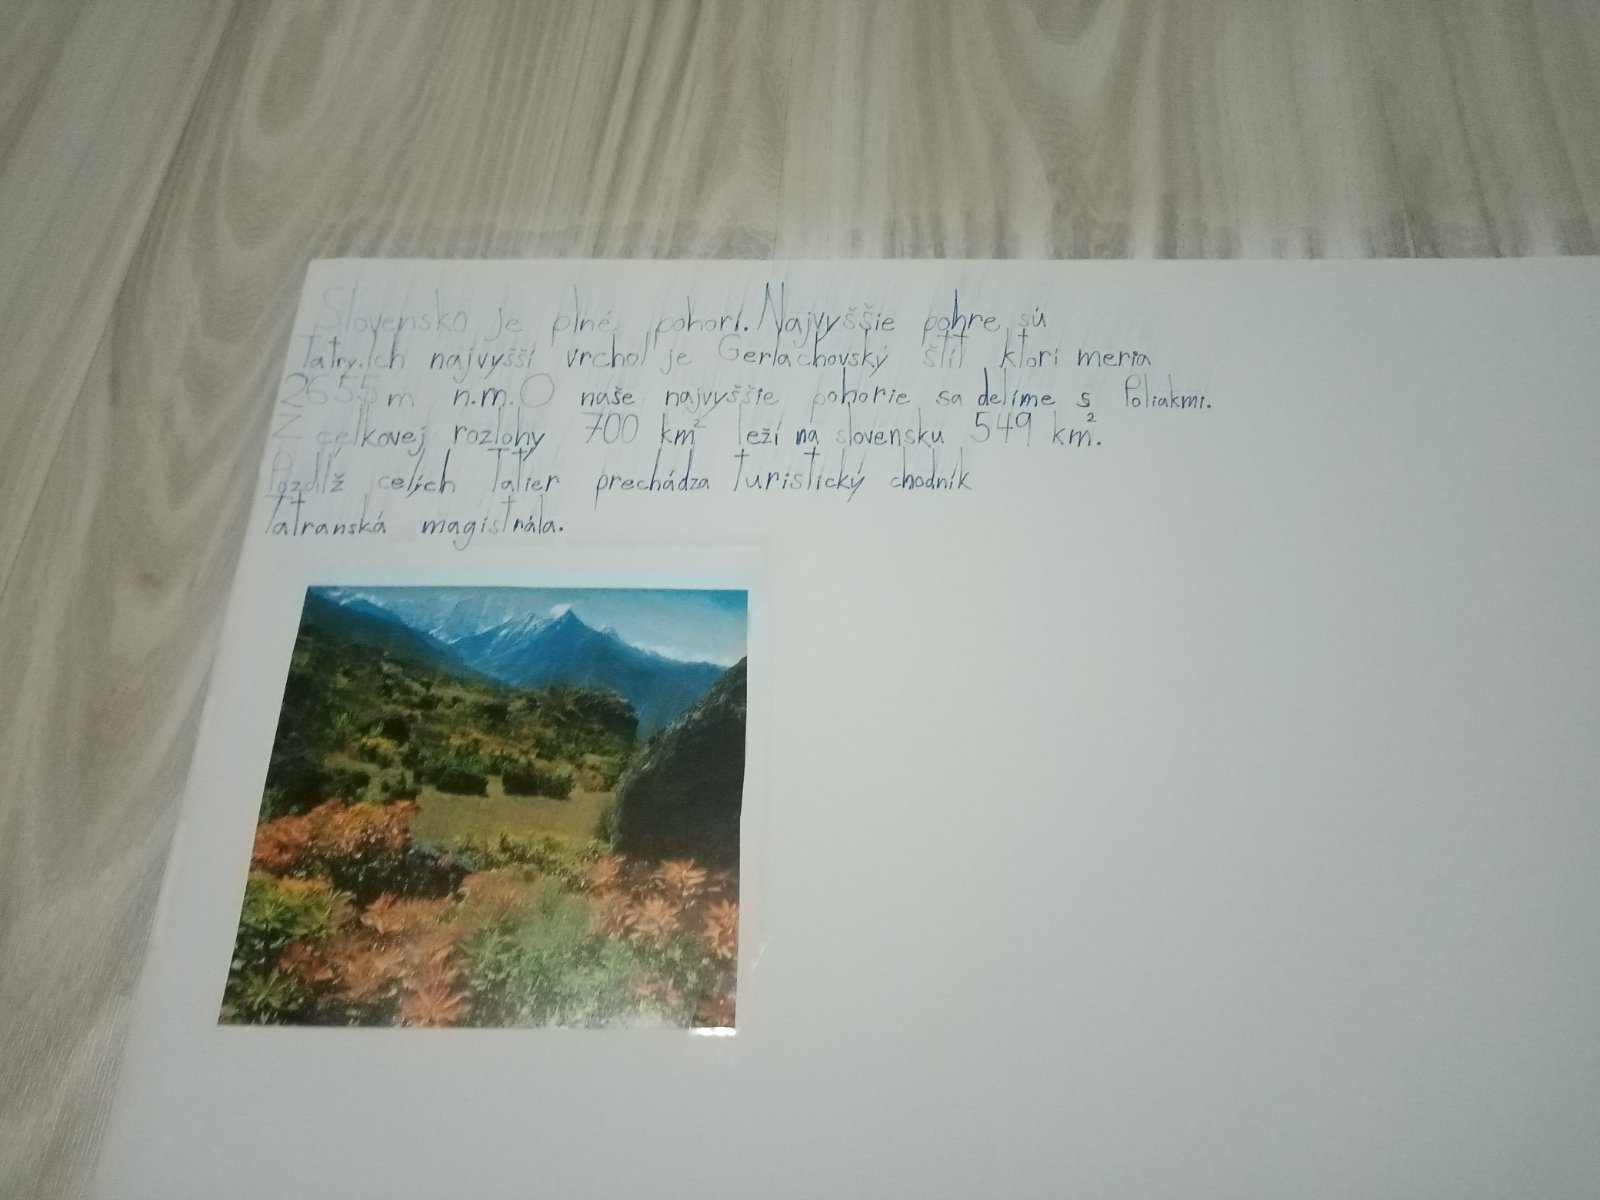 Slovensko je plné pohorí. Najvyššie pohre sú
Tatry. Ich najvyšší vrchol je Gerlachovský štít ktorí meria
2655 m n.m. O naše najvyššie pohorie sa delíme s Poliakmi.
Z celkovej rozlohy 700 km² leží na slovensku 549 km².
Pozdĺž celích Tatier prechádza turistický chodník
Tatranská magistrála.